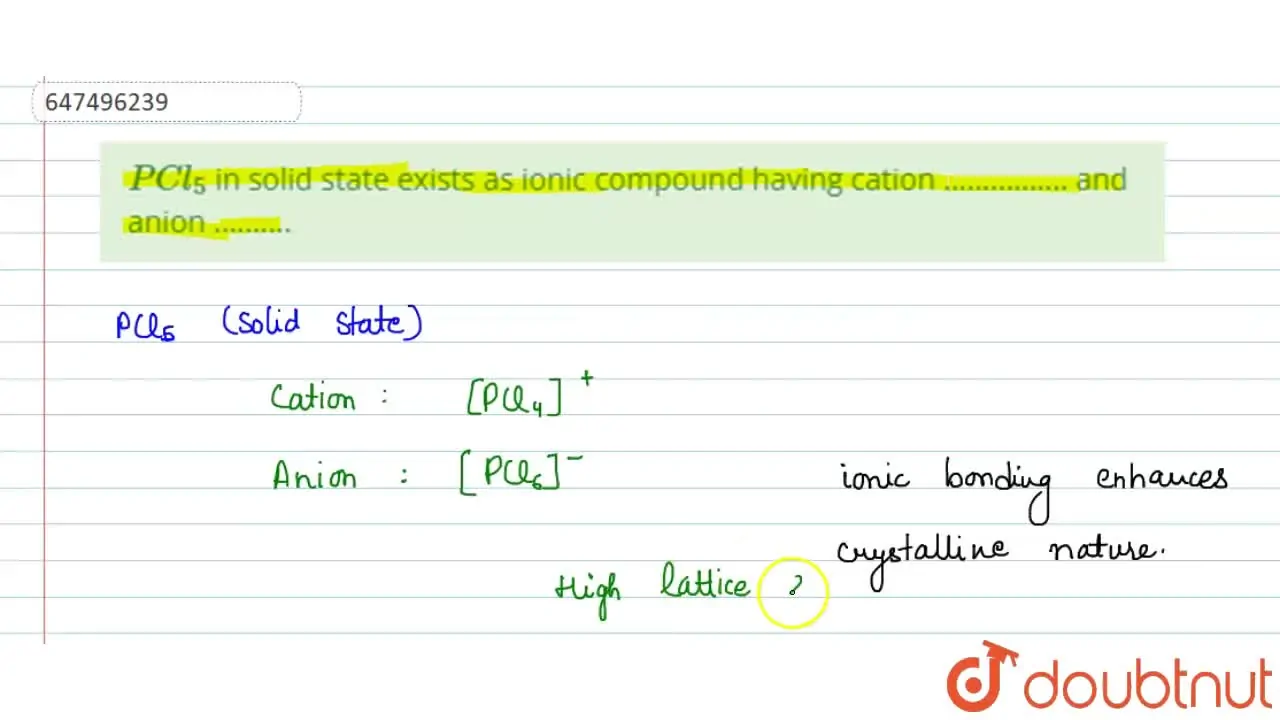 647496239
PCl₅ in solid state exists as ionic compound having cation ................ and
anion ..........
PCl₅ (Solid state)
Cation : [PCl₄]⁺
Anion : [PCl₆]⁻
ionic bonding enhances
crystalline nature.
High lattice
doubtnut